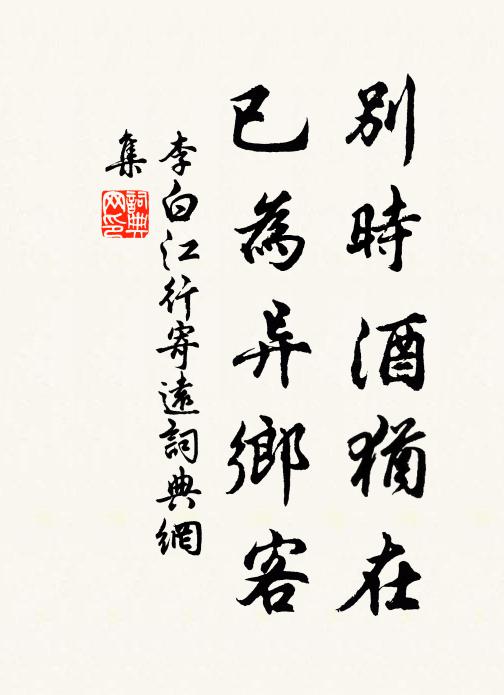 別時酒猶在
已為异鄉客
李白江行寄遠詞典網
集
詞典
网印